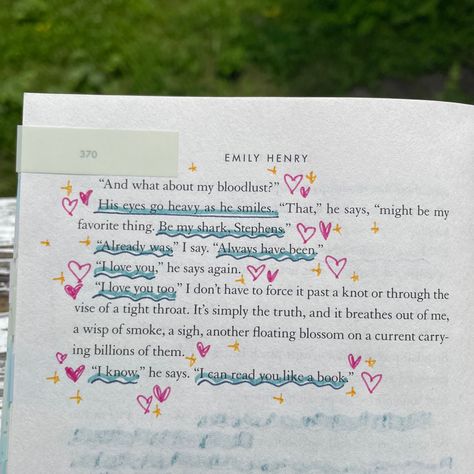 370
EMILY HENRY
“And what about my bloodlust?”
His eyes go heavy as he smiles. “That,” he says, “might be my
favorite thing. Be my shark, Stephens.”
“Already was,” I say. “Always have been.”
“I love you,” he says again.
“I love you too.” I don’t have to force it past a knot or through the
vise of a tight throat. It’s simply the truth, and it breathes out of me,
a wisp of smoke, a sigh, another floating blossom on a current carry-
ing billions of them.
“I know,” he says. “I can read you like a book.”